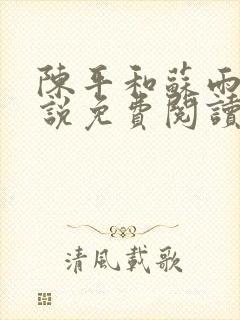 陳平和蘇雨
說免費閱讀
清風載歌